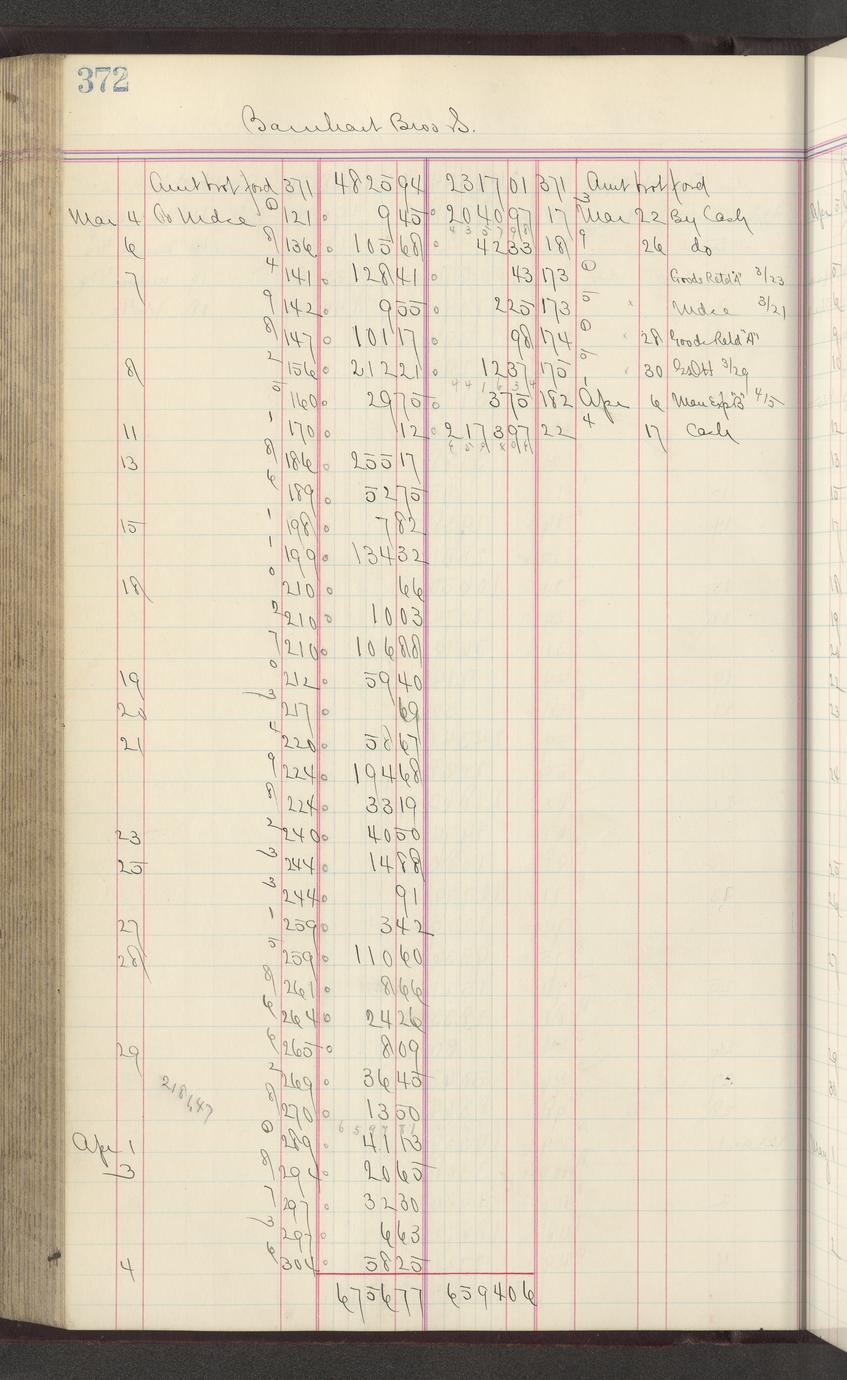 372
Barnhart Bros & S.
Amt brot ford 371 4825 94 2317 01 371 Amt brot ford
Mar 4 To Mdse 0 121 9 45 2040 97 17 3 Mar 22 By Cash
4 3 5 7 9 8
6 8 136 105 68 42 33 18 9 26 do
7 4 141 128 41 43 173 0 Goods Retd "A" 3/23
9 142 9 55 2 25 173 5 Mdse 3/21
8 147 101 17 98 174 0 28 Goods Retd "A"
8 2 156 212 21 12 37 175 5 30 3/29
4 4 1 6 3 4
5 160 29 75 3 75 182 1 Apr 6 Man Exp "B" 4/5
11 1 170 12 2173 97 22 4 17 Cash
13 8 186 255 17
6 189 52 75
15 1 198 7 82
1 199 134 32
18 0 210 66
2 210 10 03
7 210 106 88
19 0 212 59 40
20 3 217 69
21 4 220 58 67
9 224 194 68
8 224 33 19
23 2 240 40 50
25 3 244 14 88
3 244 91
27 1 259 3 42
28 5 259 110 60
8 261 8 66
6 264 24 26
29 6 265 8 09
2 269 36 45
218,47
8 270 13 50
Apr 1 0 289 41 13
3 8 294 20 65
7 297 32 30
3 297 6 63
4 6 304 58 25
6756 77 6594 06